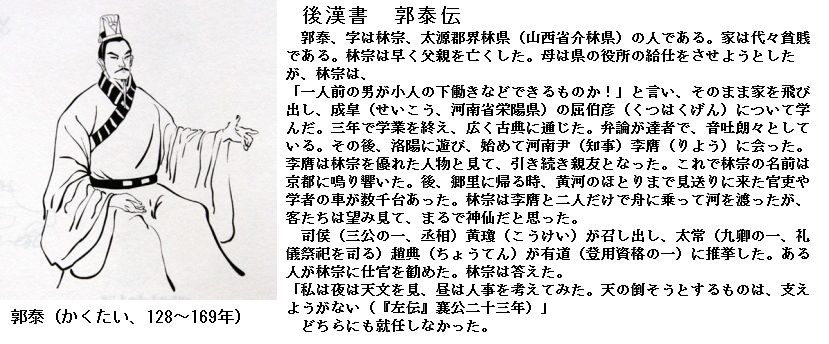 後漢書　郭泰伝
　郭泰、字は林宗、太源郡界林県（山西省介林県）の人である。家は代々貧賎
である。林宗は早く父親を亡くした。母は県の役所の給仕をさせようとした
が、林宗は、
「一人前の男が小人の下働きなどできるものか！」と言い、そのまま家を飛び
出し、成皐（せいこう、河南省栄陽県）の屈伯彦（くつはくげん）について学
んだ。三年で学業を終え、広く古典に通じた。弁論が達者で、音吐朗々として
いる。その後、洛陽に遊び、始めて河南尹（知事）李膺（りよう）に会った。
李膺は林宗を優れた人物と見て、引き続き親友となった。これで林宗の名前は
京都に鳴り響いた。後、郷里に帰る時、黄河のほとりまで見送りに来た官吏や
学者の車が数千台あった。林宗は李膺と二人だけで舟に乗って河を渡ったが、
客たちは望み見て、まるで神仙だと思った。
　司徒（三公の一、丞相）黄瓊（こうけい）が召し出し、太常（九卿の一、礼
儀祭祀を司る）趙典（ちょうてん）が有道（登用資格の一）に推挙した。ある
人が林宗に仕官を勧めた。林宗は答えた。
「私は夜は天文を見、昼は人事を考えてみた。天の倒そうとするものは、支え
ようがない（『左伝』襄公二十三年）」
　どちらにも就任しなかった。
郭泰（かくたい、128～169年）